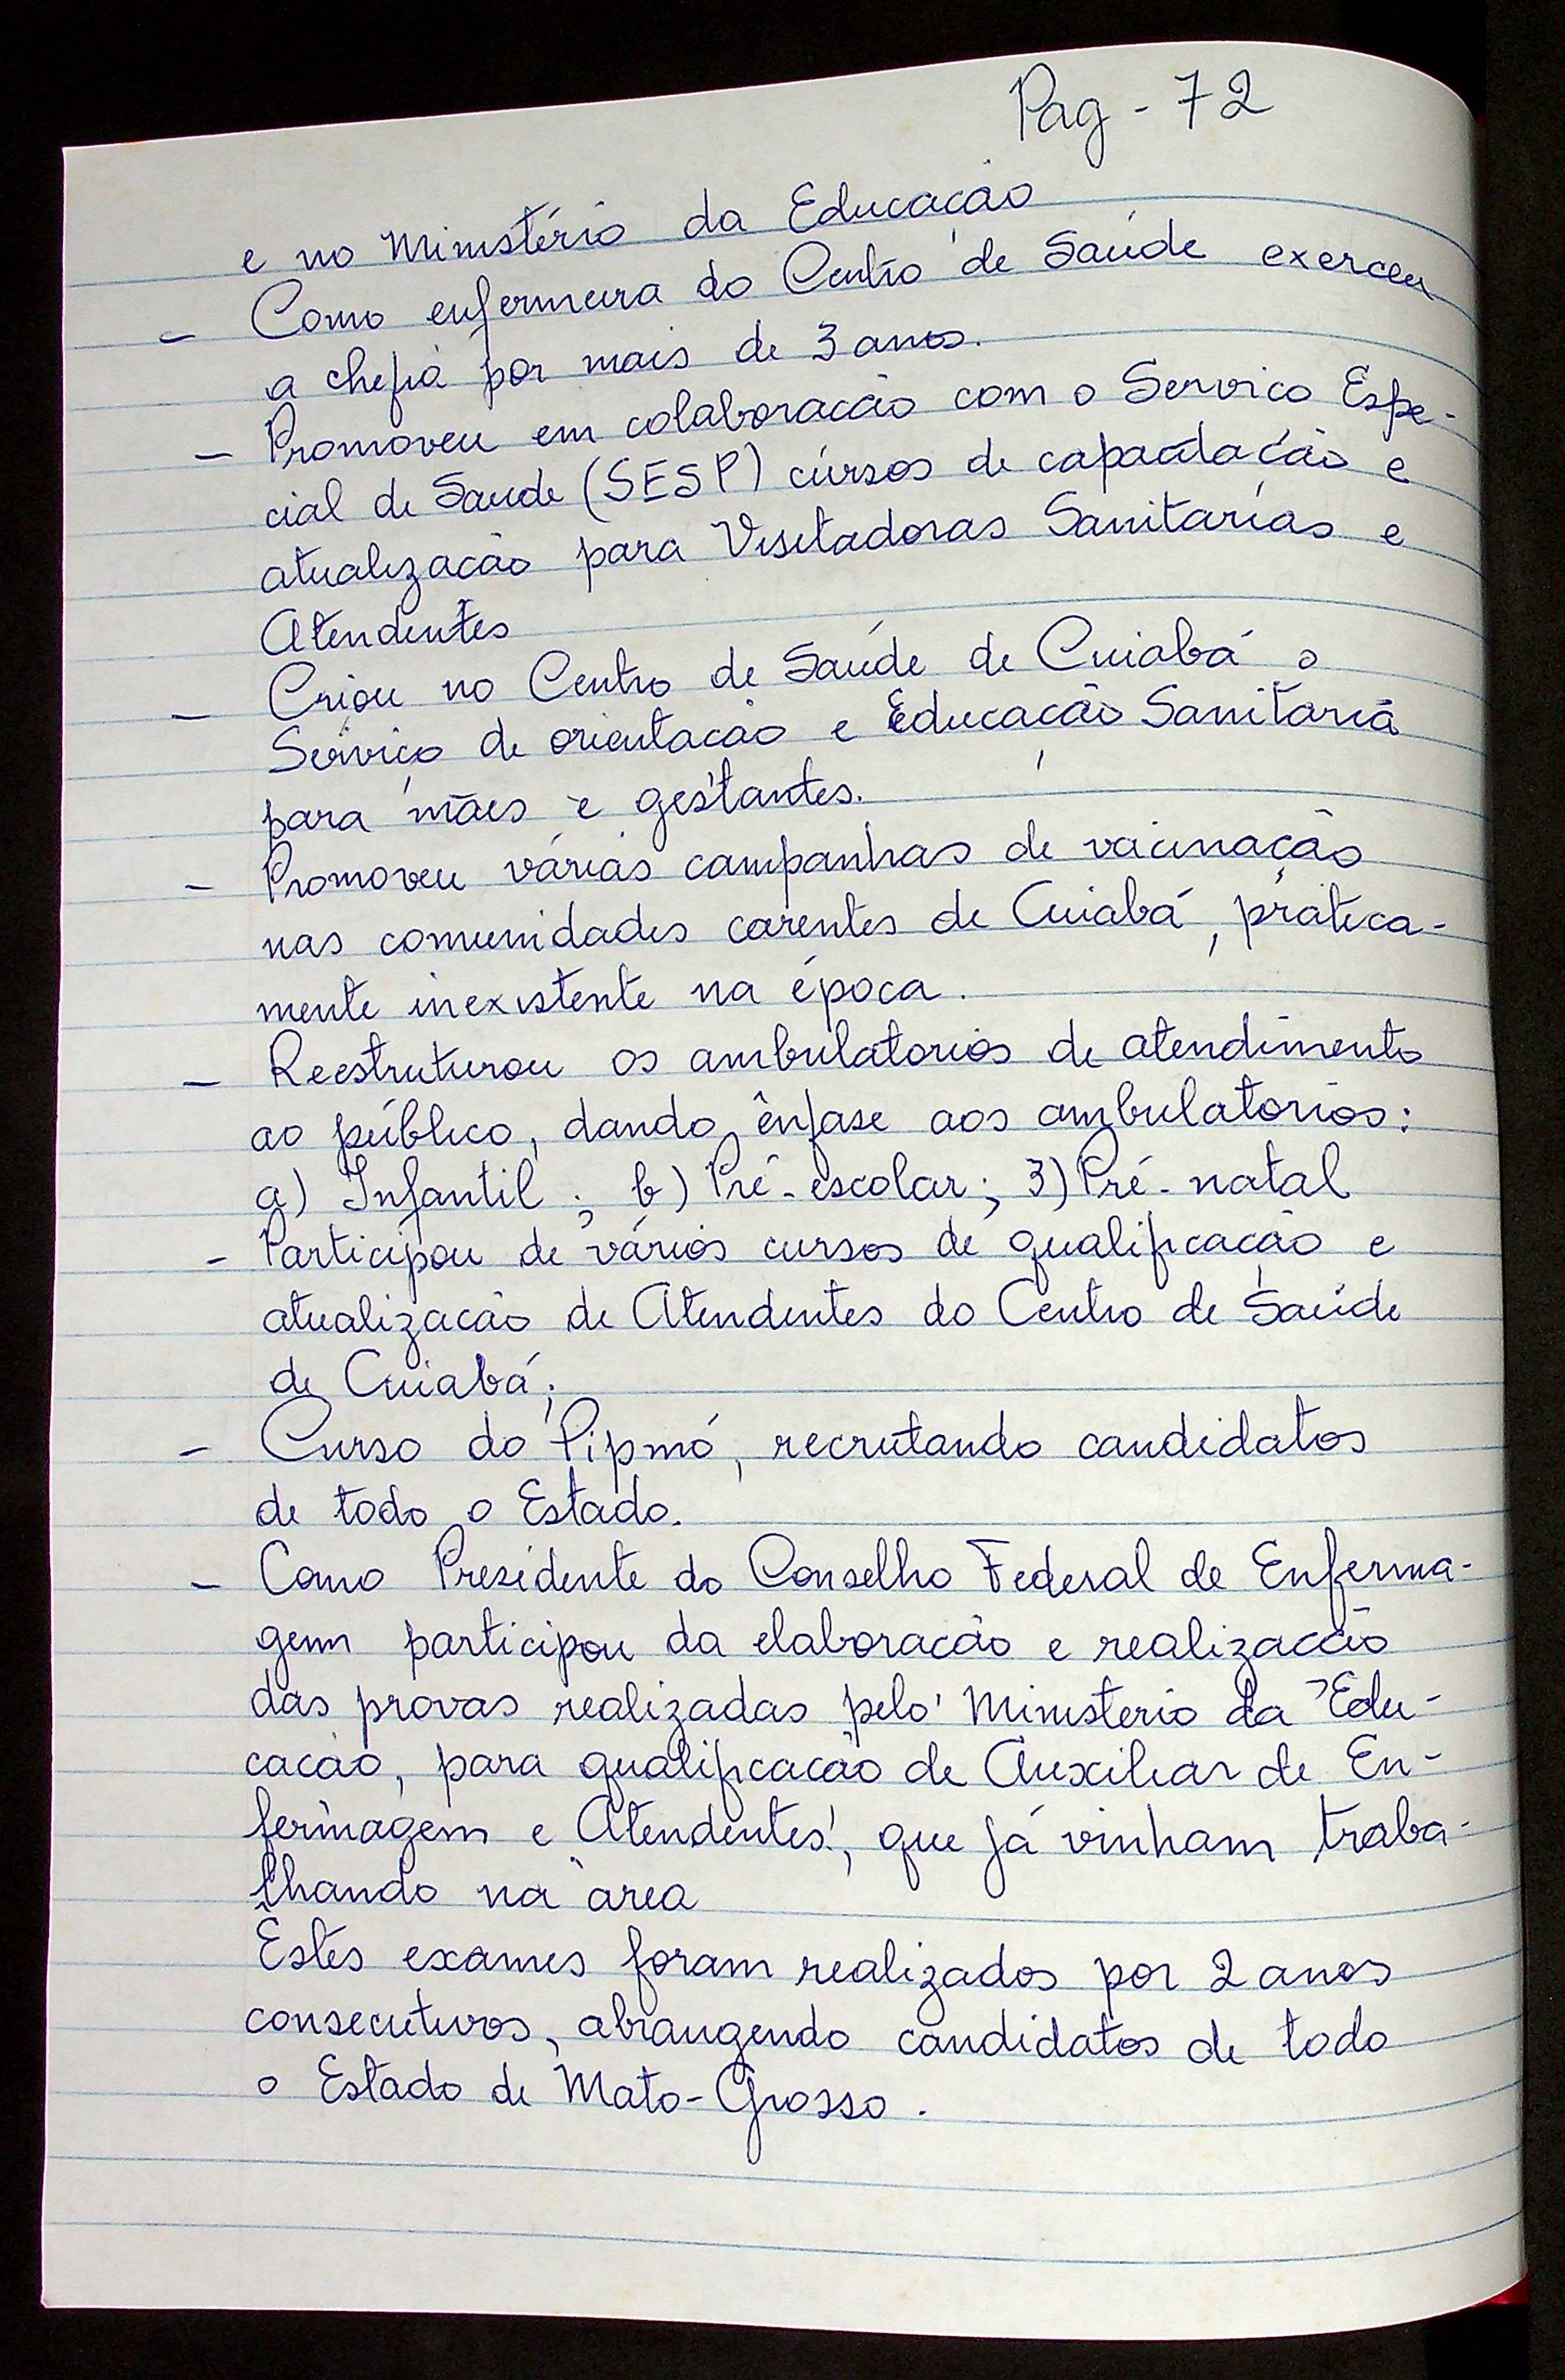 Pag - 72
e no Ministério da Educação
- Como enfermeira do Centro de Saúde exerceu
a chefia por mais de 3 anos.
- Promoveu em colaboração com o Servico Espe-
cial de Saude (SESP) cursos de capacitação e
atualização para Visitadoras Sanitárias e
Atendentes
- Criou no Centro de Saúde de Cuiabá o
Serviço de orientação e Educação Sanitaria
para mães e gestantes.
- Promoveu várias campanhas de vacinação
nas comunidades carentes de Cuiabá, pratica-
mente inexistente na época.
- Reestruturou os ambulatorios de atendimento
ao público, dando ênfase aos ambulatorios:
a) Infantil ; b) Pré-escolar; 3) Pré-natal
- Participou de vários cursos de qualificação e
atualizacão de Atendentes do Centro de Saúde
de Cuiabá;
- Curso do Pipmó, recrutando candidatos
de todo o Estado.
- Como Presidente do Conselho Federal de Enferma-
gem participou da elaboracão e realizacão
das provas realizadas pelo Ministerio da Edu-
cacão, para qualificacão de Auxiliar de En-
fermagem e Atendentes, que já vinham traba-
lhando na área
Êstes exames foram realizados por 2 anos
consecutivos, abrangendo candidatos de todo
o Estado de Mato-Grosso.